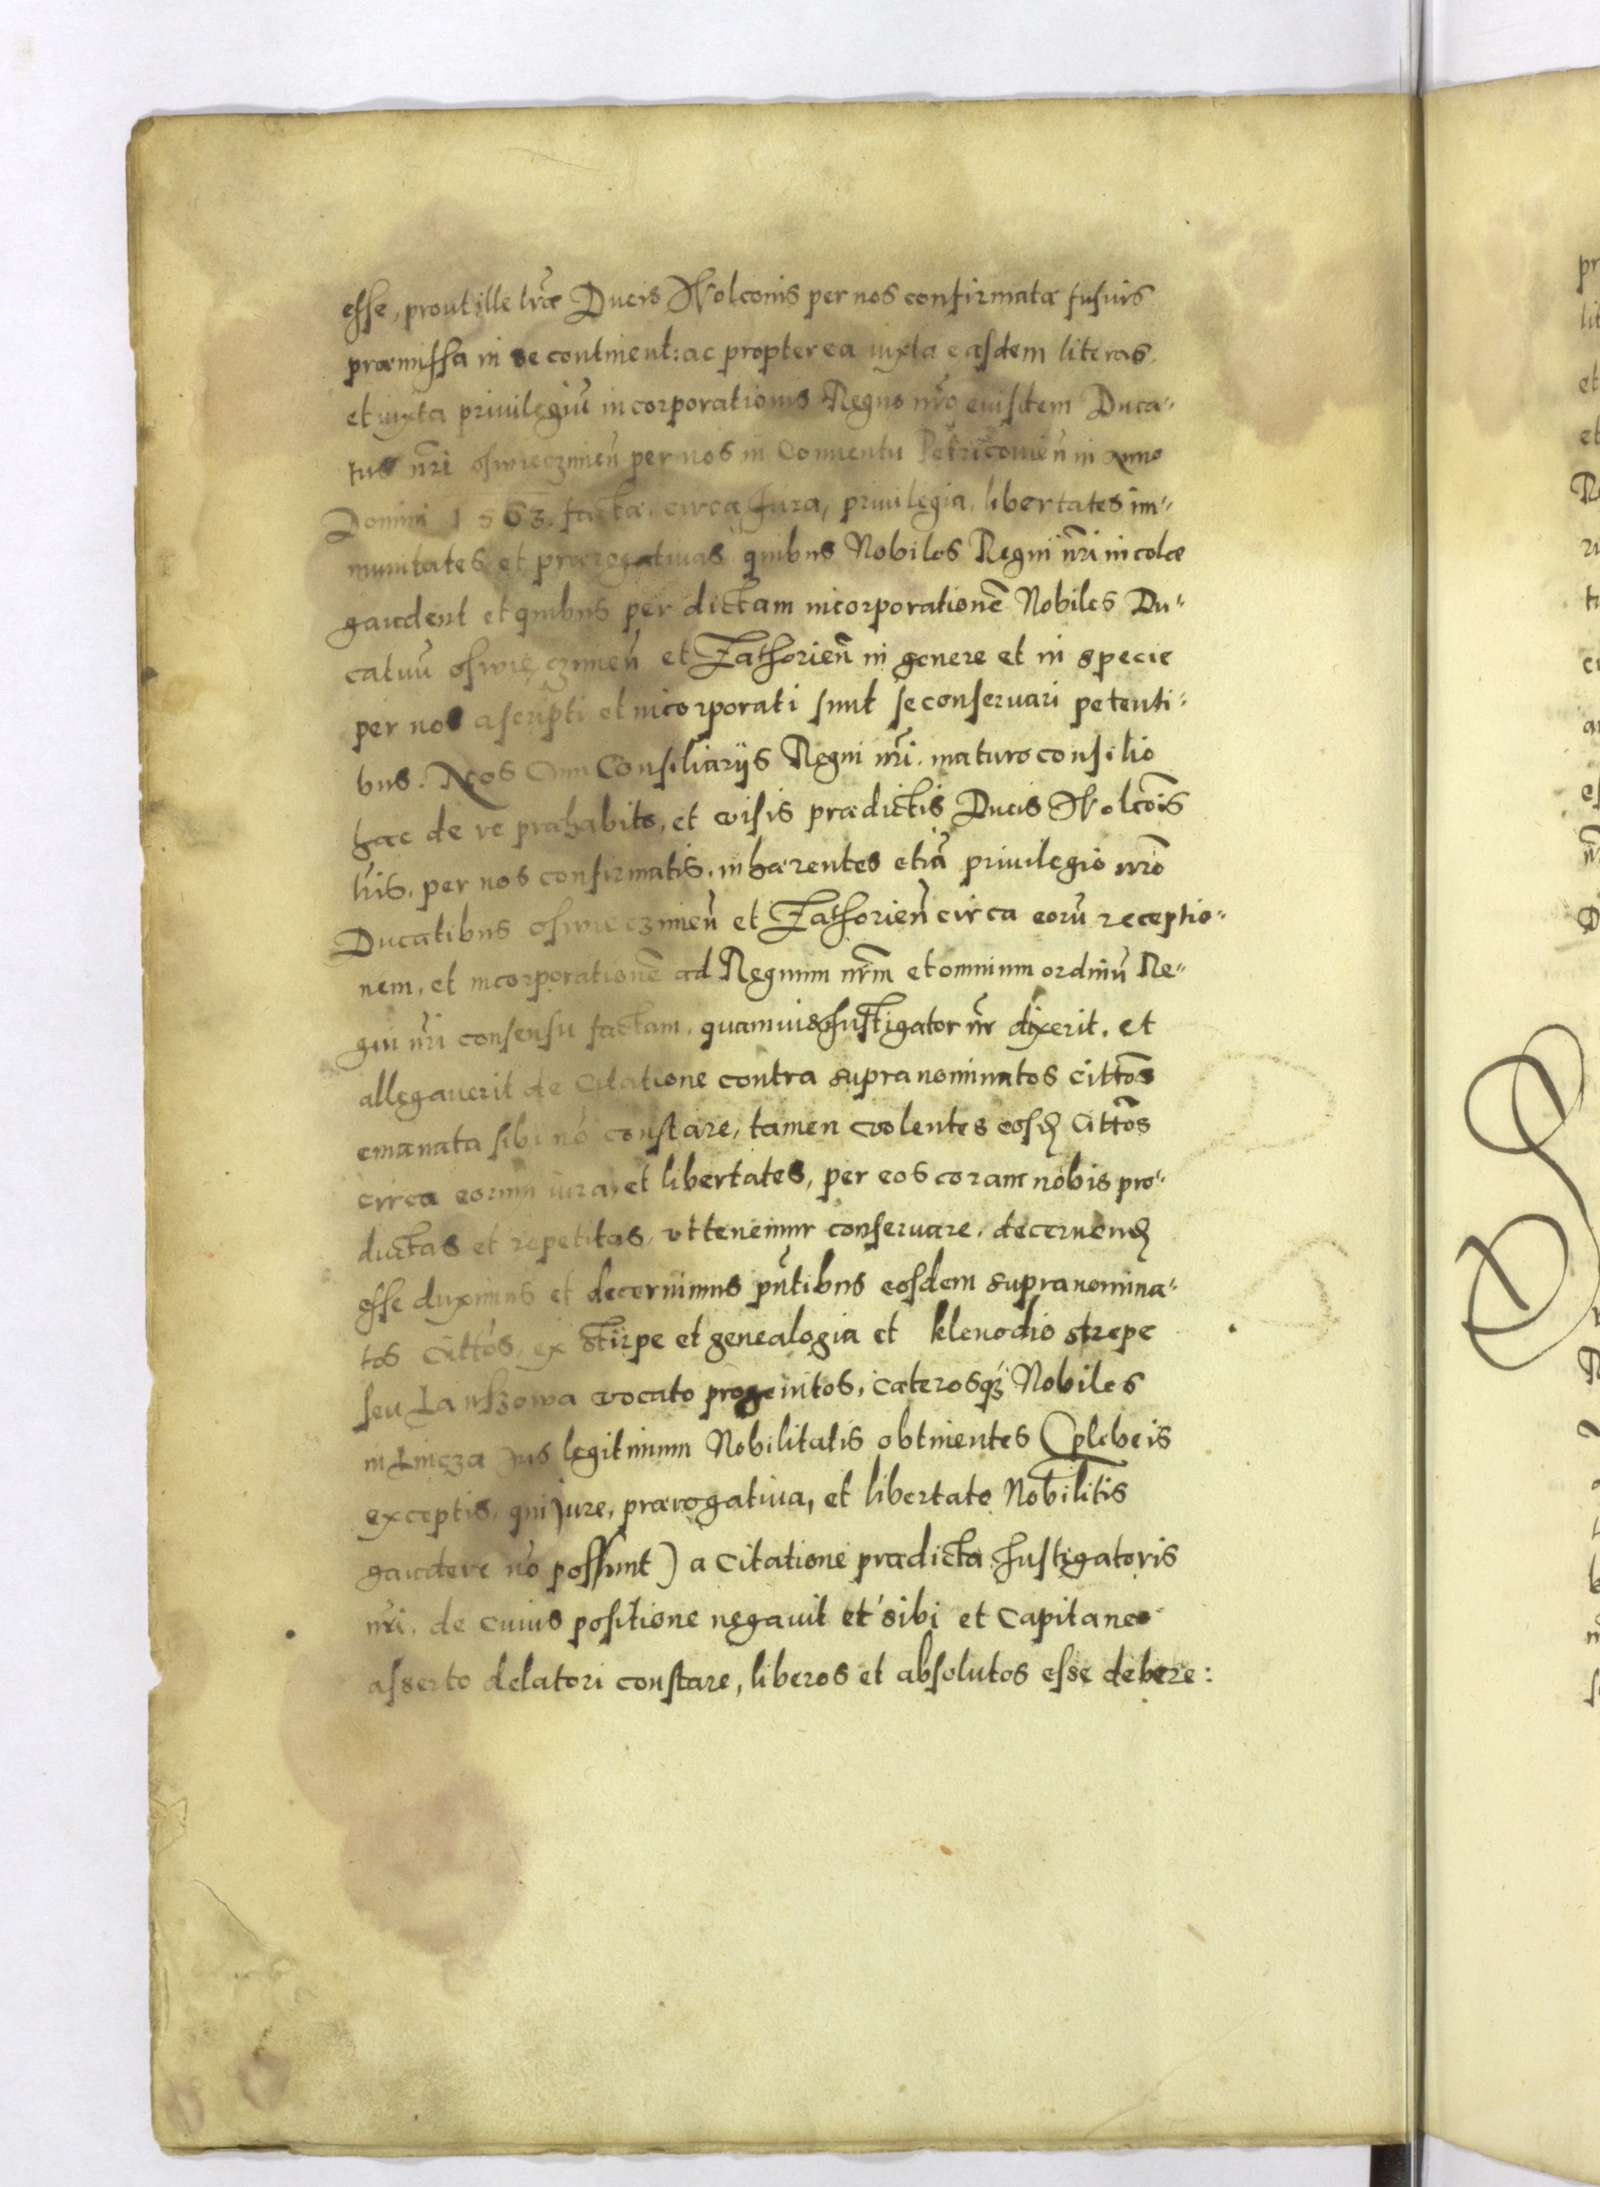 esse, prout ille lr̃æ Ducis Wolconis per nos confirmatæ fusius
præmissa in se continent: ac propterea iuxta easdem literas
et iuxta privilegiũ incorporationis Regno nr̃o eiusdem Duca-
tus nr̃i osswieczimeñ per nos in Conventu Petricovieñ in Anno
Domini 1563. factæ. circa Jura, privilegia, libertates im-
munitates et prærogativas quibus Nobiles Regni nr̃i incolæ
gaudent et quibus per dictam incorporationẽ Nobiles Du-
catuũ osswięczimeñ et Zathorieñ in genere et in specie
per nos ascripti et incorporati sunt se conservari petenti-
bus. Nos Cum Consiliarijs Regni nr̃i. maturo consilio
hac de re præhabito, et visis prædictis Ducis Wolcõis
lr̃is, per nos confirmatis, inhærentes etiã privilegio nr̃o
Ducatibus osswieczimeñ et Zathorieñ circa eorũ receptio-
nem, et incorporationẽ ad Regnum nr̃m et omnium ordinũ Re-
gni nr̃i consensu factam, quamuis Instigator nr̃ dixerit, et
allegaverit de Citatione contra supranominatos Cittõs
emanata sibi nõ constare, tamen volentes eosđ Cittõs
circa eorum iura, et libertates, per eos coram nobis pro-
ductas et repetitas, ut tenemur conservare. decernenđ
esse duximus et decernimus pñtibus eosdem supranomina-
tos Cittõs, ex stirpe et genealogia et klenodio strepe
seu Lawszowa vocato progenitos, cæterosq3 Nobiles
in Lincza jus legitimum Nobilitatis obtinentes (plebeis
exceptis, qui jure, prærogativa, et libertate Nobilitis
gaudere nõ possunt) a Citatione prædicta Instigatoris
nr̃i, de cuius positione negavit et sibi et Capitaneo
asserto delatori constare, liberos et absolutos esse debere: